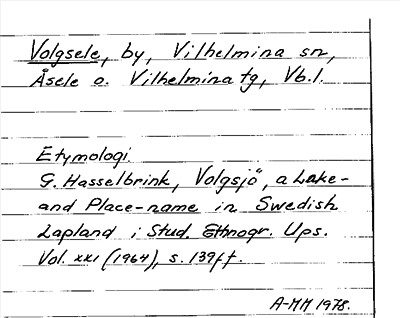 Volgsele, by, Vilhelmina sn,
Åsele o. Vilhelmina tg, Vb.l.
Etymologi
G. Hasselbrink, Volgsjö, a Lake-
and Place-name in Swedish
Lapland i Stud. Ethnogr. Ups.
Vol. XXI (1964), s. 139ff.
A-MM 1978.